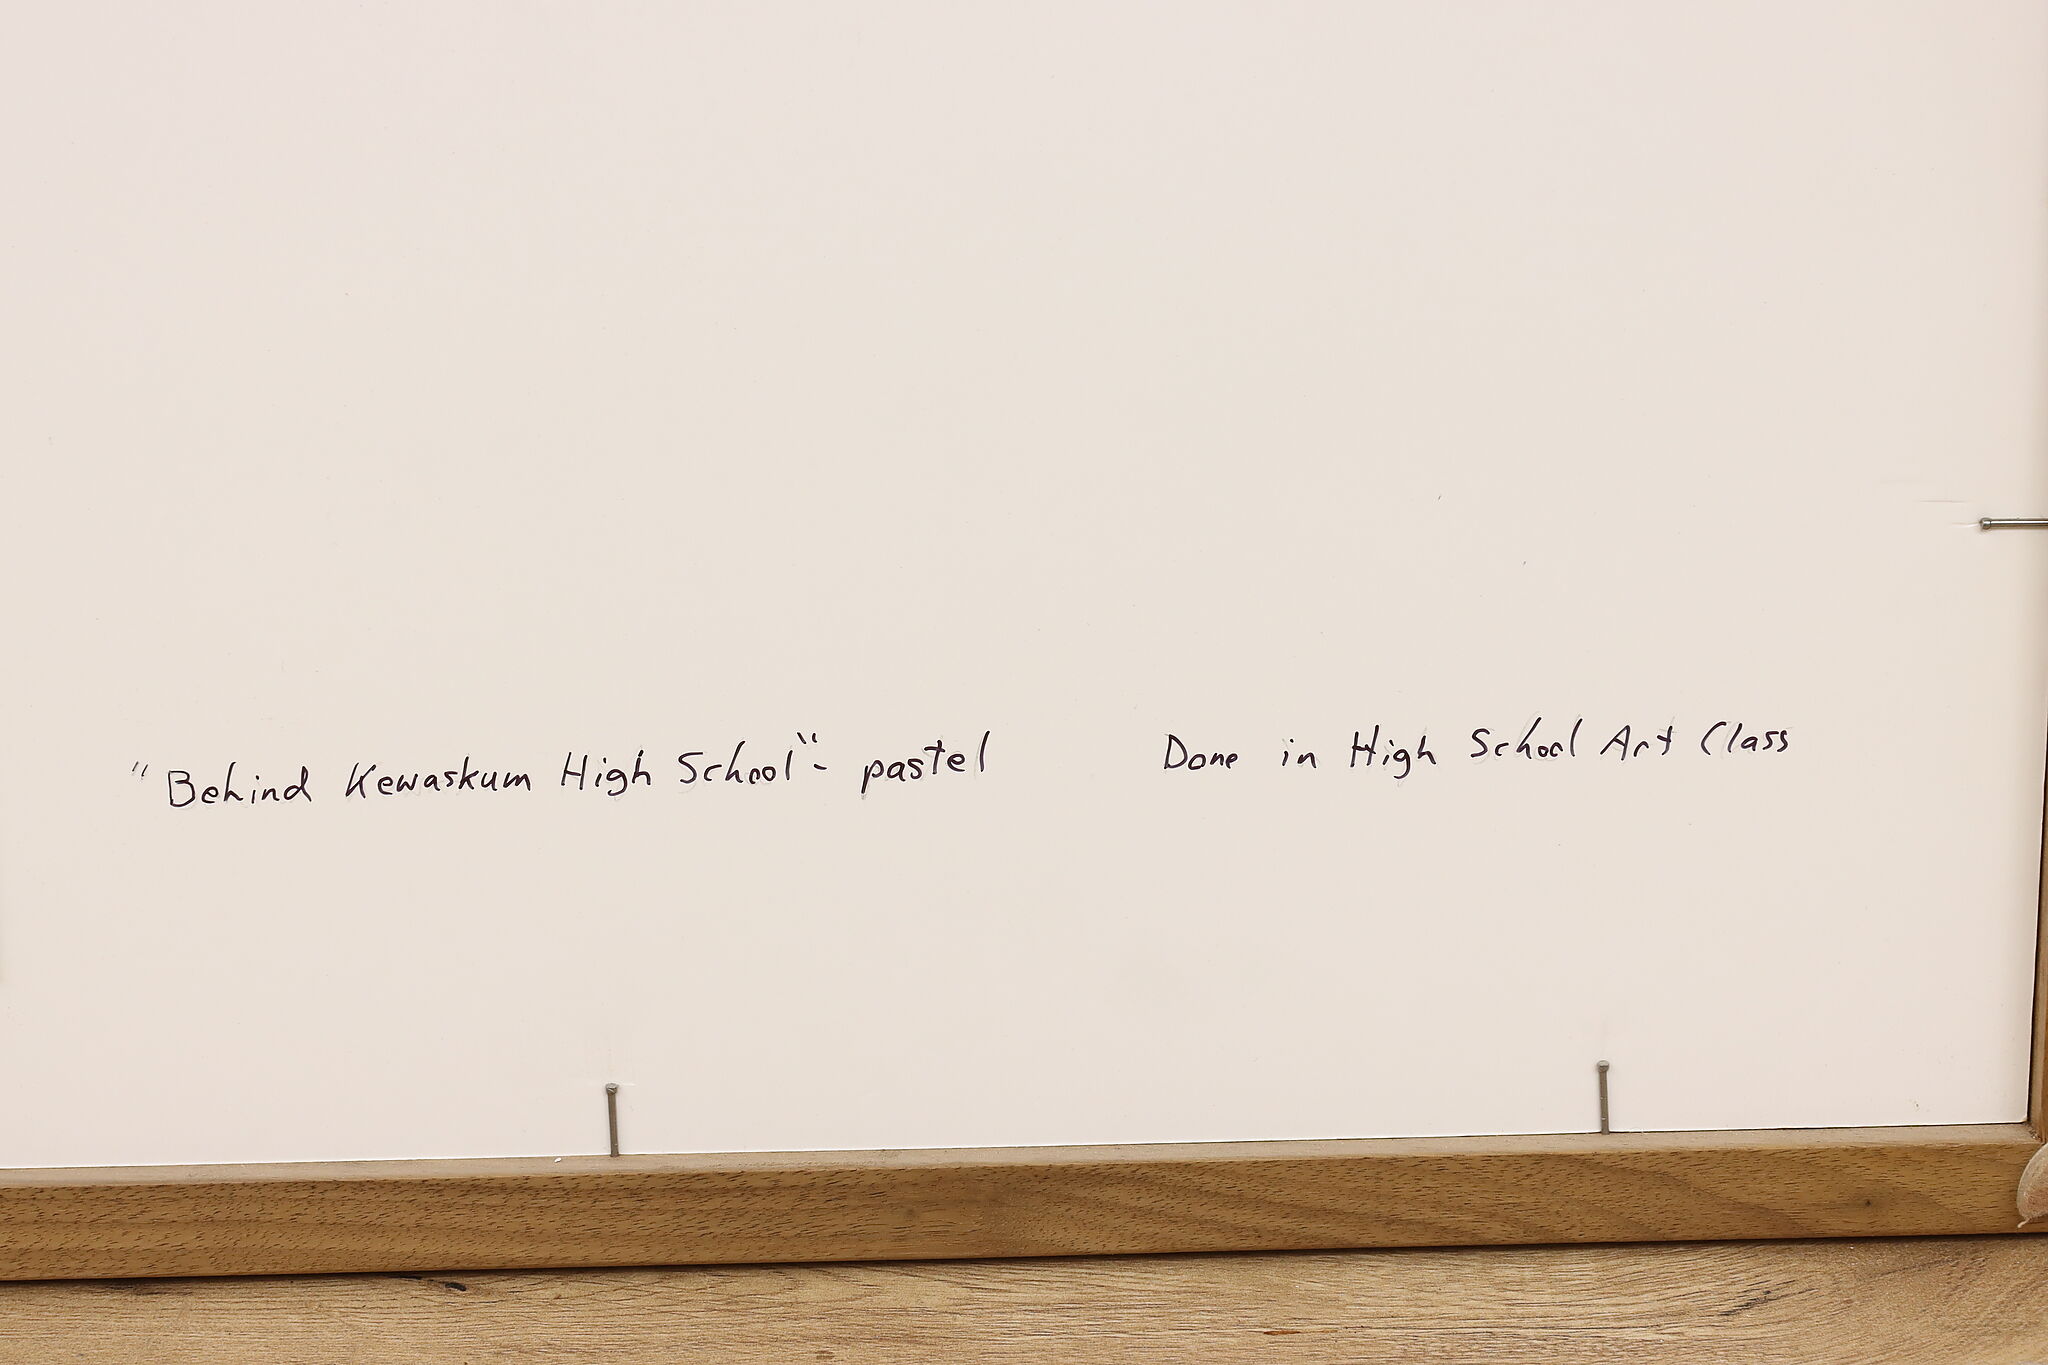 "Behind Kewaskum High School" - pastel Done in High School Art Class